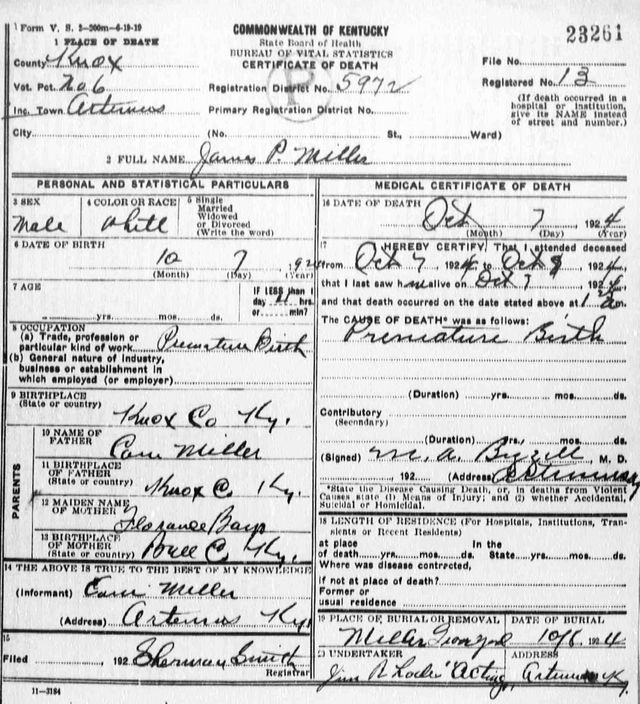 Form V. S. 2-300m-6-19-19
1 PLACE OF DEATH
COMMONWEALTH OF KENTUCKY
State Board of Health
BUREAU OF VITAL STATISTICS
CERTIFICATE OF DEATH
23261
County Knox
File No.
Vot. Pct. No 6
Registration District No. 5972
Registered No. 13
Inc. Town Artemus
Primary Registration District No.
(If death occurred in a hospital or institution, give its NAME instead of street and number.)
City (No. St., Ward)
2 FULL NAME James P. Miller
PERSONAL AND STATISTICAL PARTICULARS
3 SEX Male
4 COLOR OR RACE White
5 Single Married Widowed or Divorced (Write the word)
6 DATE OF BIRTH
10 7 192
(Month) (Day) (Year)
7 AGE
yrs. mos. ds.
IF LESS than 1 day hrs. or min?
8 OCCUPATION
(a) Trade, profession or particular kind of work Premature Birth
(b) General nature of industry, business or establishment in which employed (or employer)
9 BIRTHPLACE
(State or country)
Knox Co Ky.
PARENTS
10 NAME OF FATHER
Miller
11 BIRTHPLACE OF FATHER
(State or country)
Knox C Ky.
12 MAIDEN NAME OF MOTHER
Florance
13 BIRTHPLACE OF MOTHER
(State or country)
C Ky.
14 THE ABOVE IS TRUE TO THE BEST OF MY KNOWLEDGE
(Informant) Miller
(Address) Artemus Ky.
15
Filed 192 Sherman Smith
Registrar
11-3184
MEDICAL CERTIFICATE OF DEATH
16 DATE OF DEATH
Oct 7 1924
(Month) (Day) (Year)
17 I HEREBY CERTIFY, That I attended deceased
from Oct 7 1924, to Oct 1924,
that I last saw h alive on Oct 7 192
and that death occurred on the date stated above at 1
The CAUSE OF DEATH* was as follows:
Premature Birth
(Duration) yrs. mos. ds.
Contributory
(Secondary)
(Duration) yrs. mos. ds.
(Signed) M. A. M. D.
192 (Address)
*State the Disease Causing Death, or, in deaths from Violent Causes state (1) Means of Injury; and (2) whether Accidental, Suicidal or Homicidal.
18 LENGTH OF RESIDENCE (For Hospitals, Institutions, Transients or Recent Residents)
at place of death yrs. mos. ds. In the State yrs. mos. ds.
Where was disease contrcted,
if not at place of death?
Former or usual residence
19 PLACE OF BURIAL OR REMOVAL
Miller
DATE OF BURIAL
10/8 1924
20 UNDERTAKER
Acting
ADDRESS